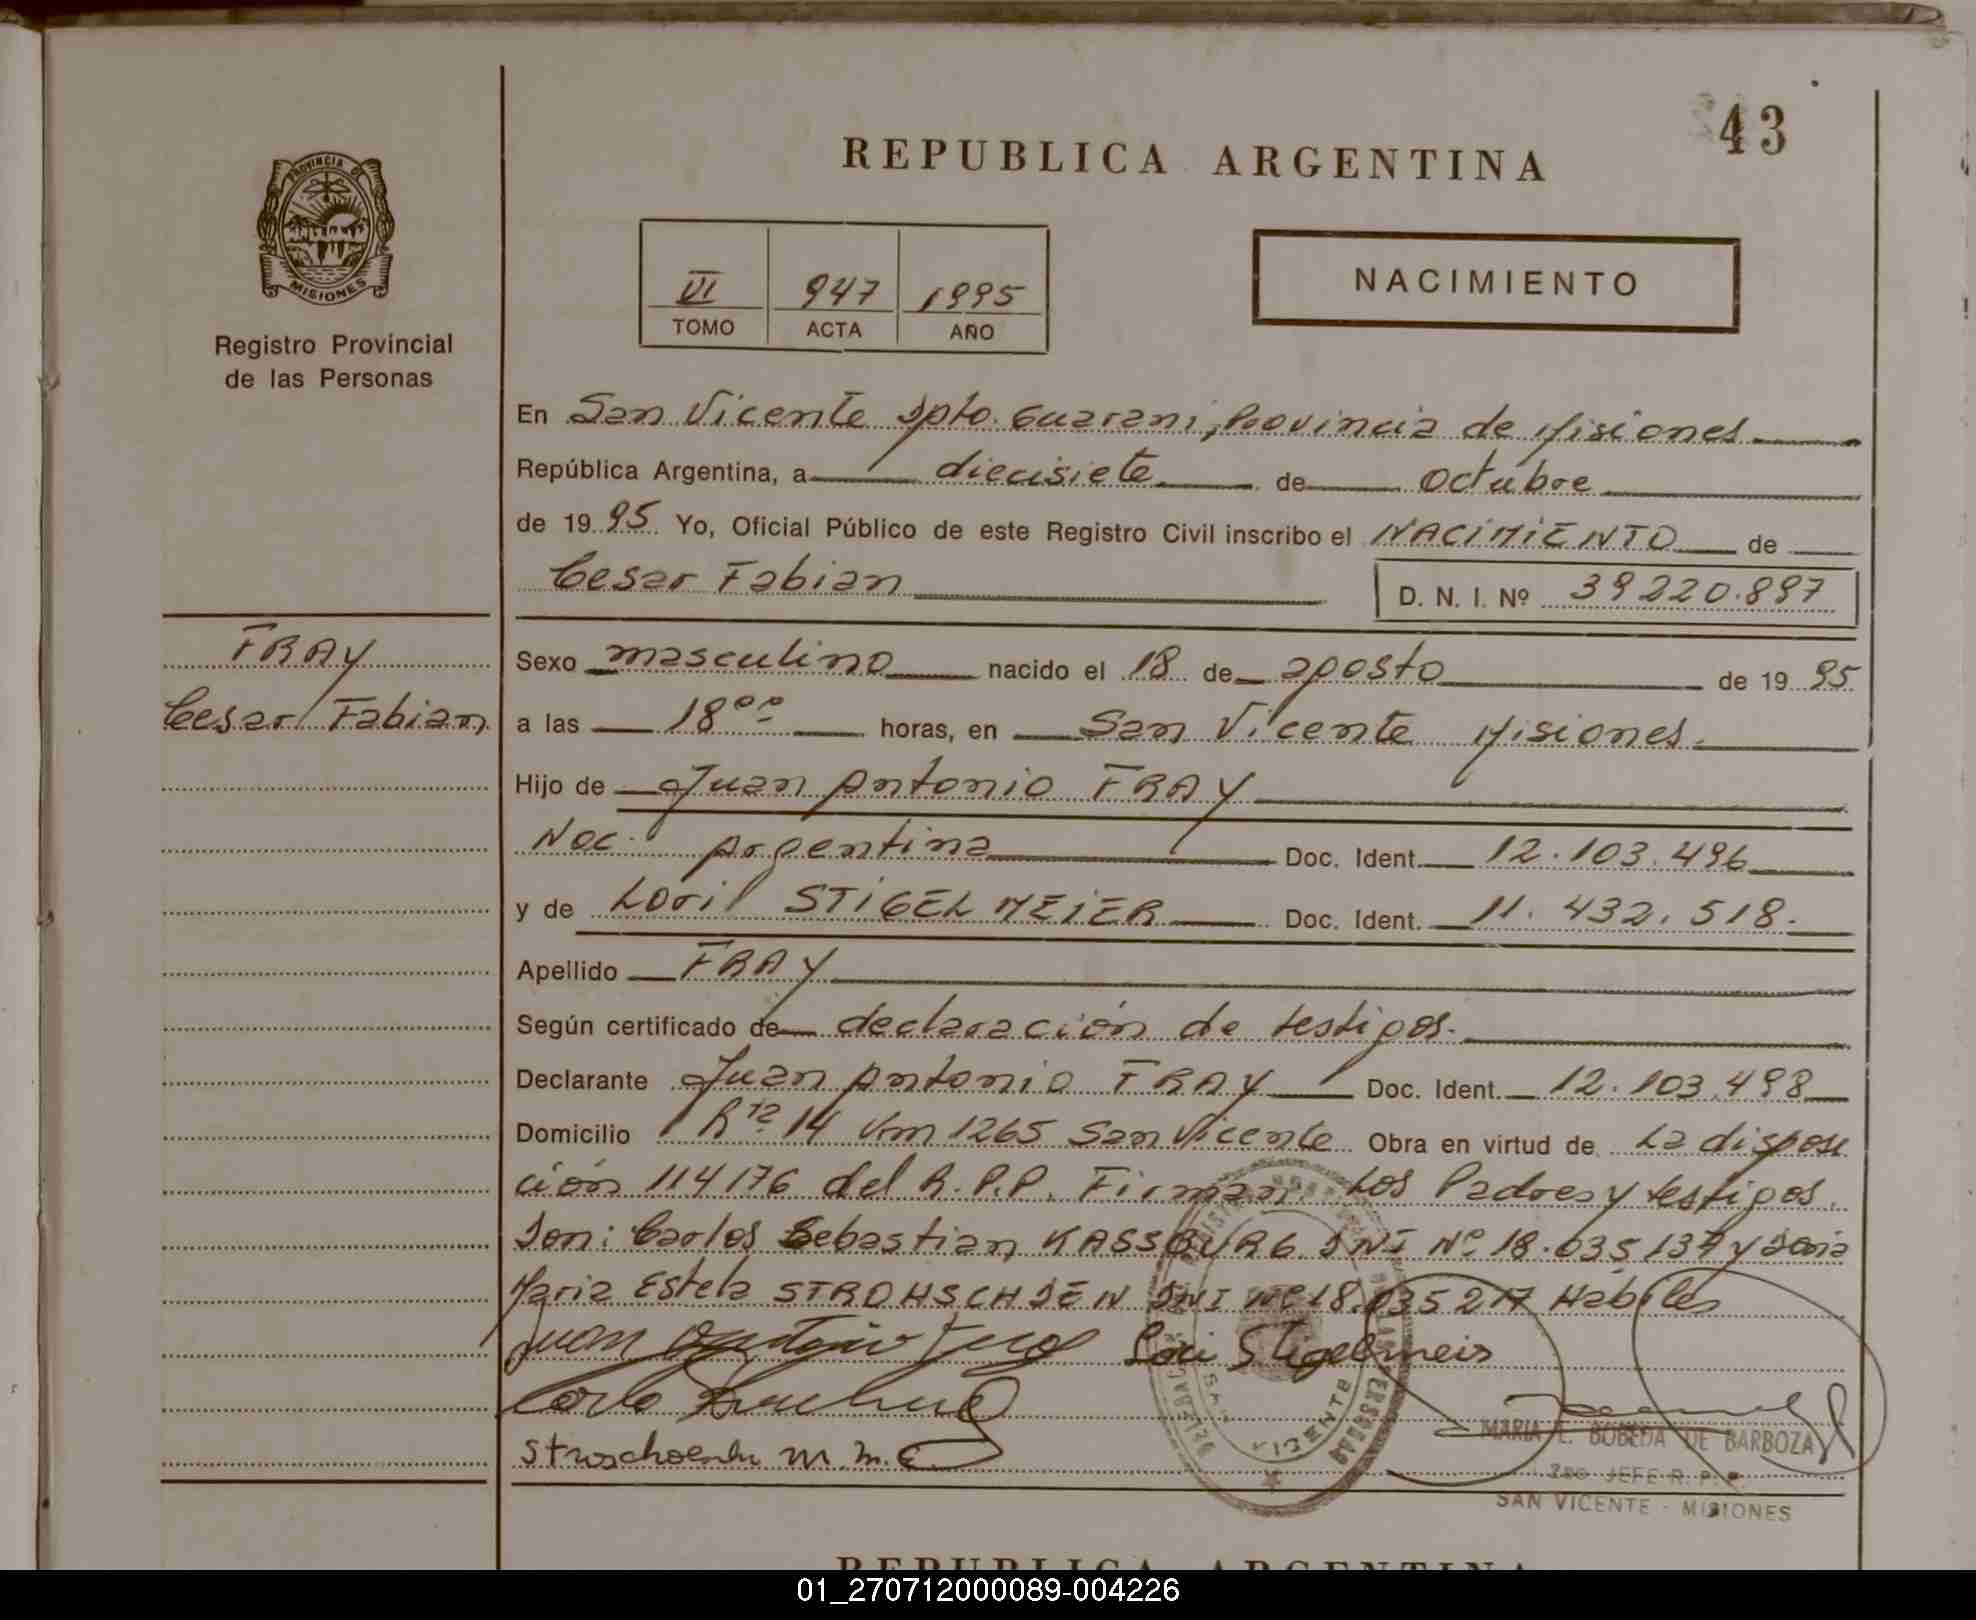 43
REPUBLICA ARGENTINA
PROVINCIA DE
MISIONES
Registro Provincial
de las Personas
VI 947 1995
TOMO ACTA AÑO
NACIMIENTO
En San Vicente Dpto. Guarani, Provincia de Misiones
República Argentina, a diecisiete de Octubre
de 1995 Yo, Oficial Público de este Registro Civil inscribo el NACIMIENTO de
Cesar Fabian D. N. I. Nº 39220.897
FRAY
Cesar Fabian
Sexo masculino nacido el 18 de agosto de 1995
a las 18°° horas, en San Vicente Misiones.
Hijo de Juan Antonio FRAY
Nac. Argentina Doc. Ident. 12.103.496
y de Loril STIGELMEIER Doc. Ident. 11.432.518.
Apellido FRAY
Según certificado de declaración de testigos.
Declarante Juan Antonio FRAY Doc. Ident. 12.103.498
Domicilio Rta 14 Km 1265 San Vicente Obra en virtud de La disposi
ción 114176 del R.P.P. Firman Los Padres y testigos.
Son: Carlos Sebastian KASSBURG DNI Nº 18.035137 y Doña
Maria Estela STROHSCHDEN DNI Nº 18.035217 Habiles
Juan Antonio Stigelmeir
m. m. E.
SAN VICENTE
MARIA E. BOBEDA DE BARBOZA
2do JEFE R. P. P.
SAN VICENTE - MISIONES
REPUBLICA ARGENTINA
01_270712000089-004226